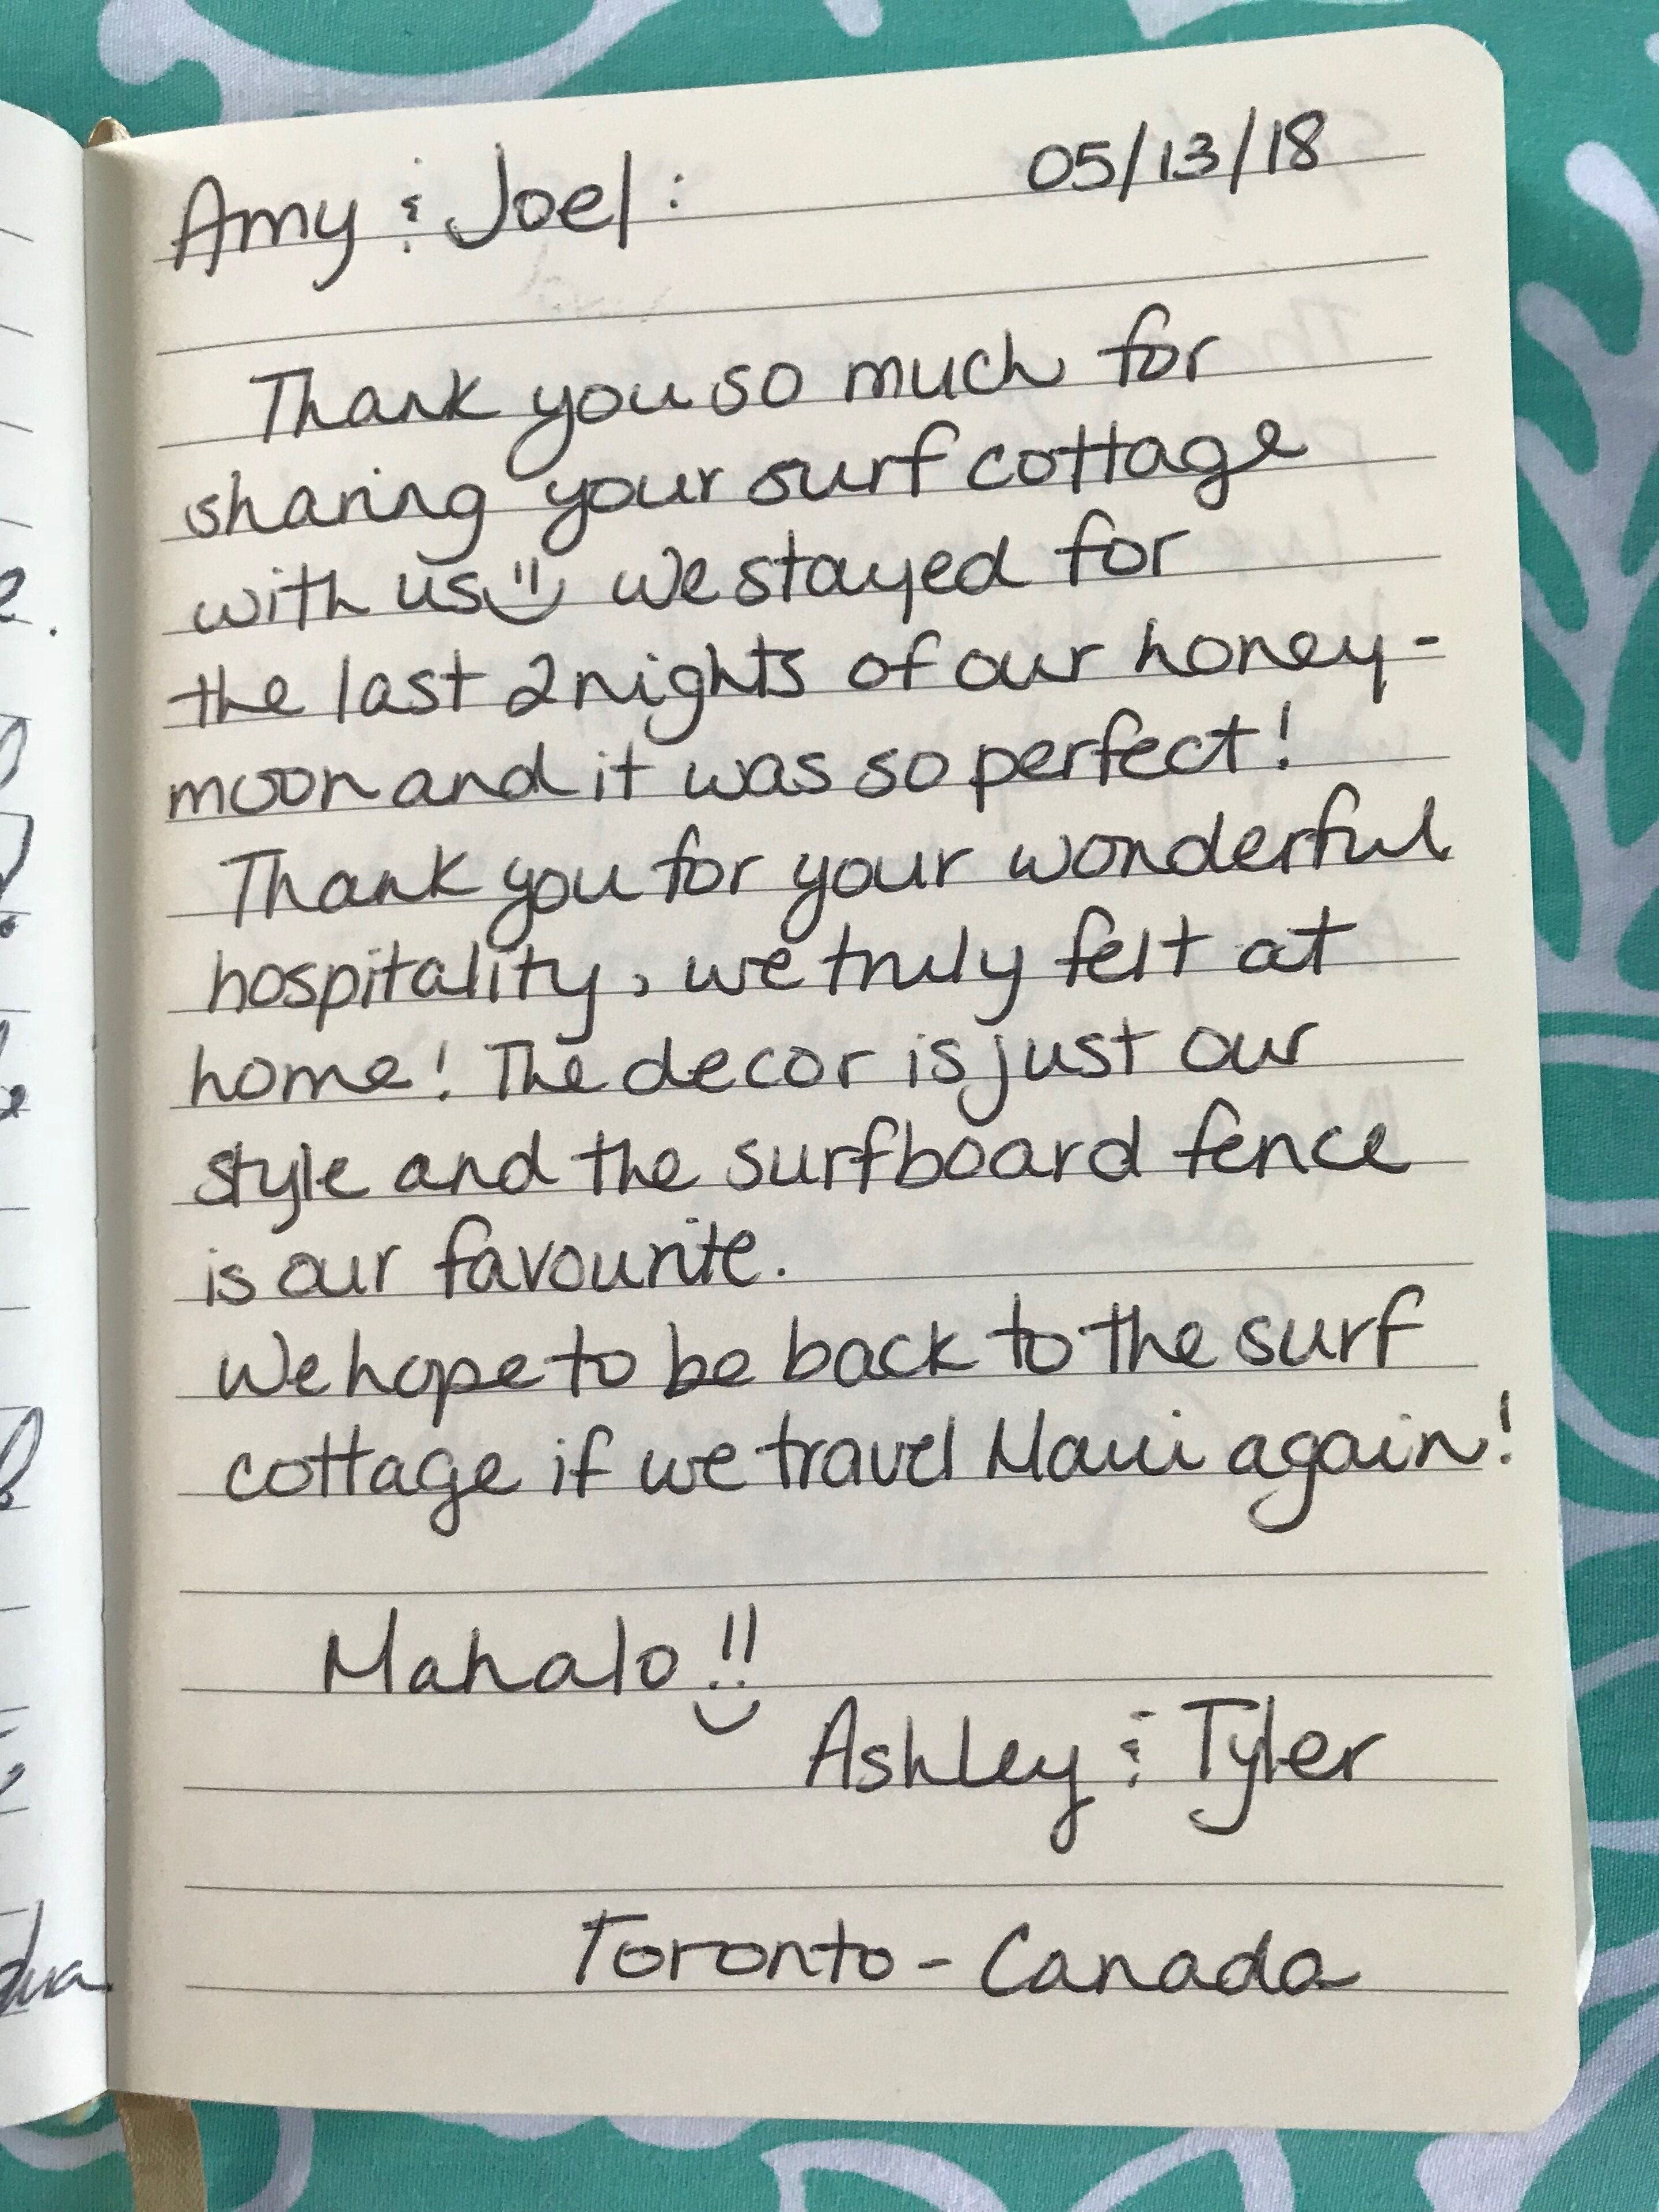 Amy & Joel: 05/13/18
Thank you so much for
sharing your surf cottage
with us we stayed for
the last 2 nights of our honey-
moon and it was so perfect!
Thank you for your wonderful
hospitality, we truly felt at
home! The decor is just our
style and the surfboard fence
is our favourite.
We hope to be back to the surf
cottage if we travel Maui again!
Mahalo!!
Ashley & Tyler
Toronto - Canada